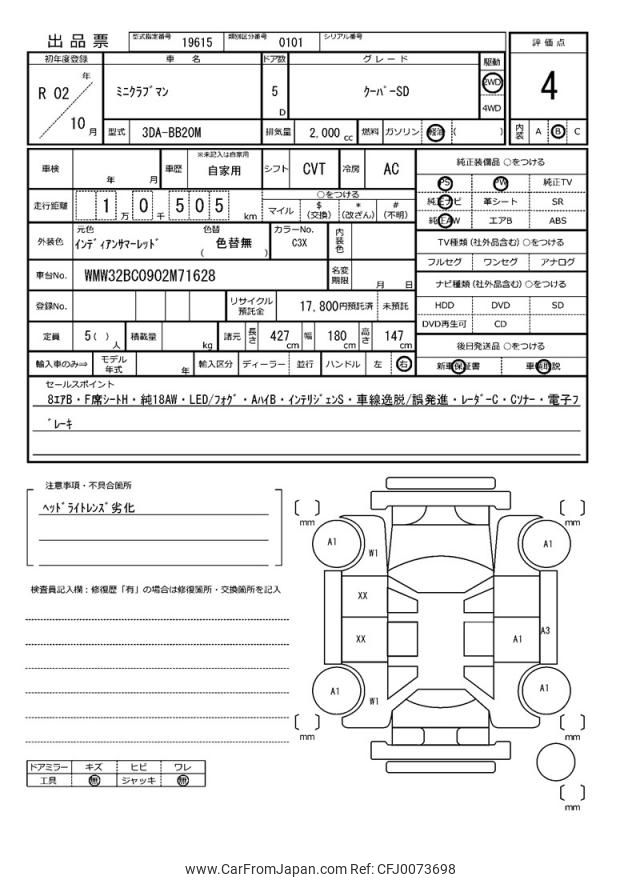 出品票 型式指定番号 19615 類別区分番号 0101 シリアル番号
評価点
4
内装 A B C
初年度登録 車名 ドア数 グレード 駆動
年
R 02 ミニクラブマン 5 クーパーSD 2WD
D 4WD
10 月 型式 3DA-BB20M 排気量 2,000 cc 燃料 ガソリン 軽油 ( )
車検 年 月 車歴 ※未記入は自家用 自家用 シフト CVT 冷房 AC
走行距離 1 万 0 千 5 0 5 km
○をつける
マイル $ (交換) * (改ざん) # (不明)
外装色 元色 インディアンサマーレッド 色替 ( 色替無 ) カラーNo. C3X 内装色
車台No. WMW32BC0902M71628 名変期限 月 日
登録No. リサイクル預託金 17,800円預託済 未預託
定員 5( ) 人 積載量 kg 諸元 長さ 427 cm 幅 180 cm 高さ 147 cm
輸入車のみ⇒ モデル年式 年 輸入区分 ディーラー 並行 ハンドル 左 右
純正装備品 ○をつける
PS PW 純正TV
純正ナビ 革シート SR
純正AW エアB ABS
TV種類(社外品含む)○をつける
フルセグ ワンセグ アナログ
ナビ種類(社外品含む)○をつける
HDD DVD SD
DVD再生可 CD
後日発送品 ○をつける
新車保証書 車輌取説
セールスポイント
8エアB・F席シートH・純18AW・LED/フォグ・AハイB・インテリジェンS・車線逸脱/誤発進・レーダーC・Cソナー・電子ブ
レーキ
注意事項・不具合箇所
ヘッドライトレンズ劣化
検査員記入欄：修復歴「有」の場合は修復箇所・交換箇所を記入
ドアミラー キズ ヒビ ワレ
工具 無 ジャッキ 無
mm mm
A1 W1 A1
XX
XX A1 A3
A1 W1 A1
mm mm
mm
www.CarFromJapan.com Ref: CFJ0073698